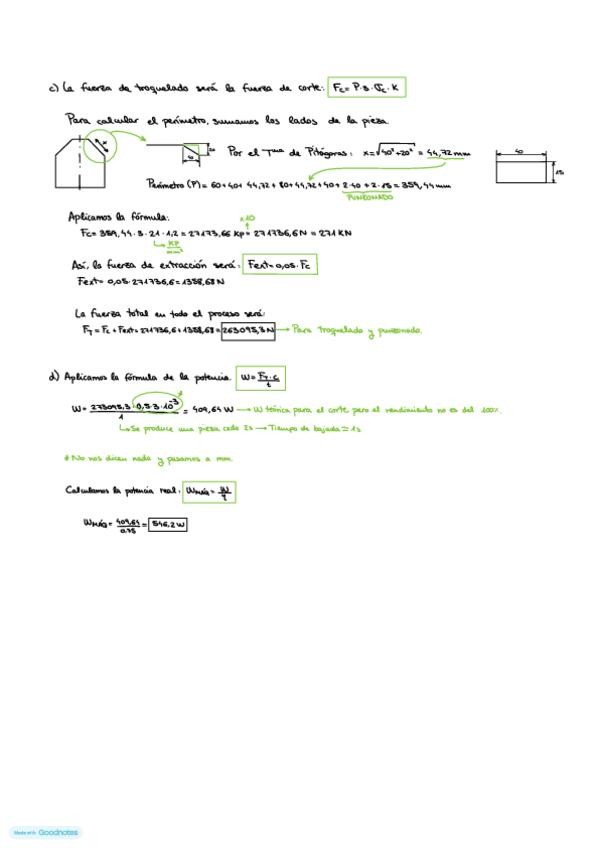 c) La fuerza de troquelado será la fuerza de corte: Fc = P·s·σc·K
Para calcular el perímetro, sumamos los lados de la pieza
x
40
Por el Tma de Pitágoras: x = √40²+20² = 44,72 mm
40
15
Perímetro (P) = 60+40+44,72+80+44,72+40+2·40+2·15 = 359,44 mm
PUNZONADO
Aplicamos la fórmula:
x10
Fc = 359,44·3·21·1,2 = 27173,66 Kp = 271736,6 N = 271 KN
Kp/mm²
Así, la fuerza de extracción será: Fext = 0,05·Fc
Fext = 0,05·271736,6 = 1358,68 N
La fuerza total en todo el proceso será:
FT = Fc + Fext = 271736,6 + 1358,68 = 263095,3 N → Para troquelado y punzonado.
d) Aplicamos la fórmula de la potencia. W = FT·c/t
W = 273095,3·0,5·3·10⁻³/1 = 409,64 W → W teórica para el corte pero el rendimiento no es del 100%.
↳ Se produce una pieza cada 2s → Tiempo de bajada ≃ 1s
* No nos dicen nada y pasamos a mm.
Calculamos la potencia real: Wmáq = W/η
Wmáq = 409,64/0,75 = 546,2 W
Made with Goodnotes